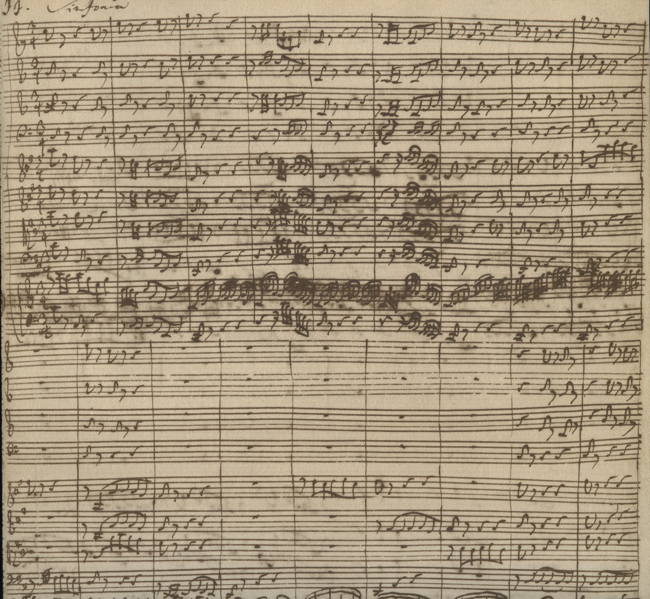 JJ. Sinfonia